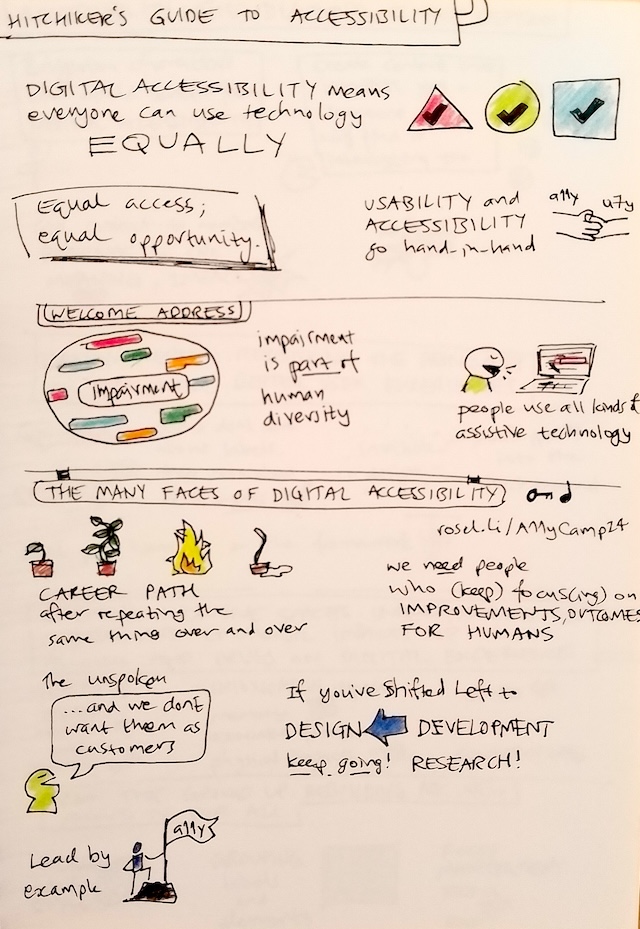 HITCHIKER'S GUIDE TO ACCESSIBILITY
DIGITAL ACCESSIBILITY means
everyone can use technology
EQUALLY
Equal access;
equal opportunity.
USABILITY and
ACCESSIBILITY
go hand-in-hand
a11y
u7y
WELCOME ADDRESS
impairment
impairment
is part of
human
diversity
people use all kinds of
assistive technology
THE MANY FACES OF DIGITAL ACCESSIBILITY
rosel.li/A11yCamp24
CAREER PATH
after repeating the
same thing over and over
we need people
who (keep) focus(ing) on
IMPROVEMENTS, OUTCOMES
FOR HUMANS
The unspoken
...and we don't
want them as
customers
If you've shifted left to
DESIGN DEVELOPMENT
keep going! RESEARCH!
Lead by
example
a11y